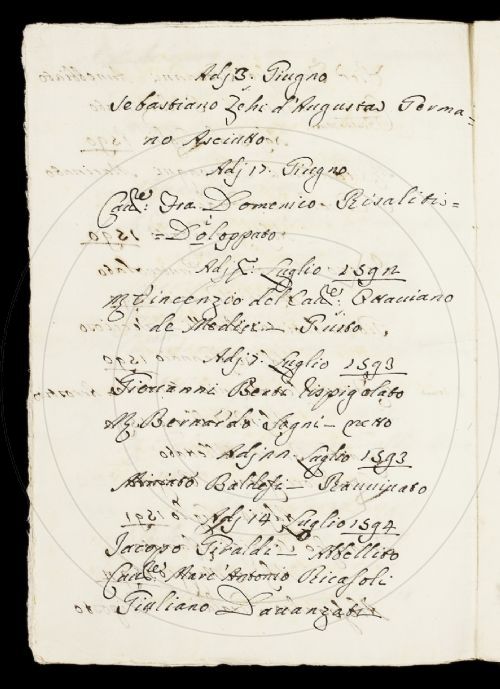 Adj 3. Giugno
Sebastiano Zehi d'Augusta Germa=
no Asciutto
Adj 17. Giugno
Cau.re: Fra Domenico Risaliti=
=Doloppato
Adj p.º Luglio 1592
Vincenzio del Cau.re: Ottaviano
de Medici – Giusto
Adj 7. Luglio 1593
Giouanni Berti Rispigolato
Bernardo Sogni – netto
Adj 11. Luglio 1593
Baldesi – Rauuiuato
Adj 14 Luglio 1594
Jacopo Giraldi – Abbellito
Cau.re Marc'Antonio Ricasoli
Giuliano Dauanzati